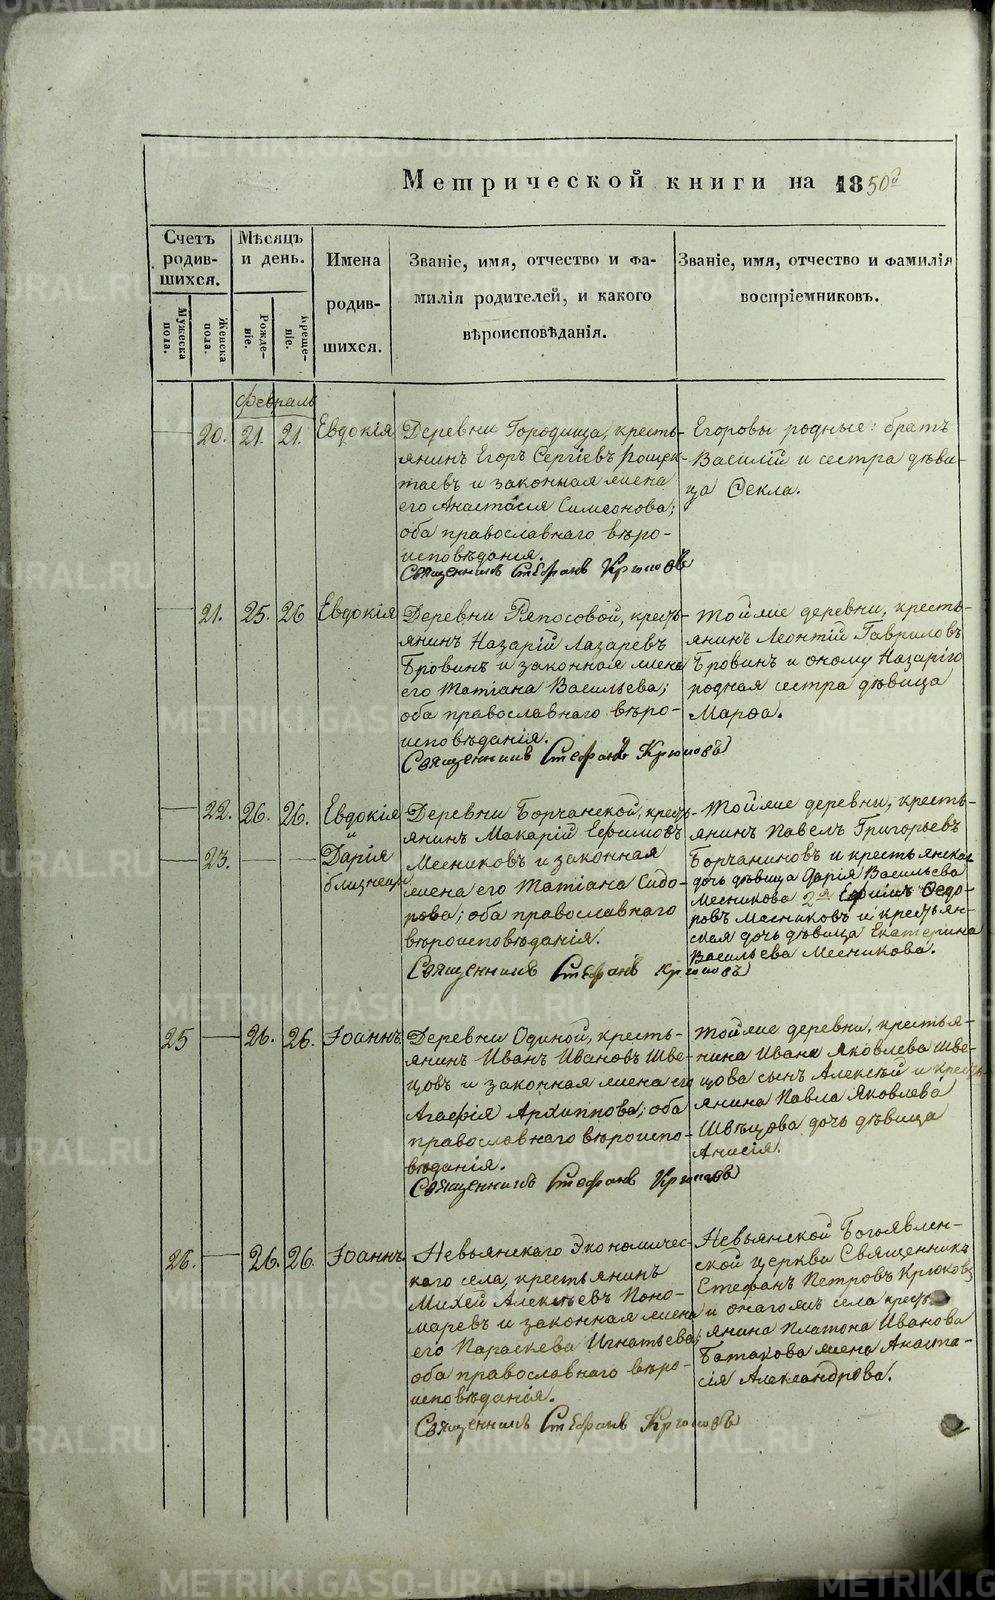 Метрической книги на 1850й
Счетъ родив-шихся.
Мѣсяцъ и день.
Имена родив-шихся.
Званіе, имя, отчество и фа-
милія родителей, и какого
вѣроисповѣданія.
Званіе, имя, отчество и фамилія
воспріемниковъ.
Мужеска пола.
Женска пола.
Рожде-ніе.
Креще-ніе.
Февраль
20. 21. 21. Евдокія
Деревни Городища, кресть-
янинъ Егоръ Сергіевъ Рощек-
таевъ и законная жена
его Анастасія Симеонова;
оба православнаго вѣро-
исповѣданія.
Священникъ Стефанъ Крюковъ
Егоровы родные: братъ
Василій и сестра дѣви-
ца Ѳекла.
21. 25. 26 Евдокія
Деревни Рѣпосовой, кресть-
янинъ Назарій Лазаревъ
Бровинъ и законная жена
его Татіана Васильева;
оба православнаго вѣро-
исповѣданія.
Священникъ Стефанъ Крюковъ
Тойже деревни, кресть-
янинъ Леонтій Гавриловъ
Бровинъ и оному Назарію
родная сестра дѣвица
Марѳа.
22. 26. 26. Евдокія
и
23. Дарія
близнецы
Деревни Борчанской, кресть-
янинъ Макарій Ефимовъ
Месниковъ и законная
жена его Татіана Сидо-
рова; оба православнаго
вѣроисповѣданія.
Священникъ Стефанъ Крюковъ
Тойже деревни, кресть-
янинъ Павелъ Григорьевъ
Борчаниновъ и крестьянская
дочь дѣвица Дарія Васильева
Месникова 2й Ефимъ Ѳедо-
ровъ Месниковъ и крестьян-
ская дочь дѣвица Екатерина
Васильева Месникова.
25 26. 26. Іоаннъ
Деревни Одиной, кресть-
янинъ Иванъ Ивановъ Шве-
цовъ и законная жена его
Агафія Архиппова; оба
православнаго вѣроиспо-
вѣданія.
Священникъ Стефанъ Крюковъ
Тойже деревни, крестья-
нина Ивана Яковлева Шве-
цова сынъ Алексѣй и кресть-
янина Павла Яковлева
Швѣцова дочь дѣвица
Анисія.
26. 26. 26. Іоаннъ.
Невьянскаго Экономичес-
каго села, крестьянинъ
Михей Алексѣевъ Поно-
маревъ и законная жена
его Параскева Игнатьева;
оба православнаго вѣро-
исповѣданія.
Священникъ Стефанъ Крюковъ
Невьянской Богоявлен-
ской церкви Священникъ
Стефанъ Петровъ Крюковъ
и онагожъ села кресть-
янина Платона Иванова
Батакова жена Анаста-
сія Александрова.
METRIKI.GASO-URAL.RU